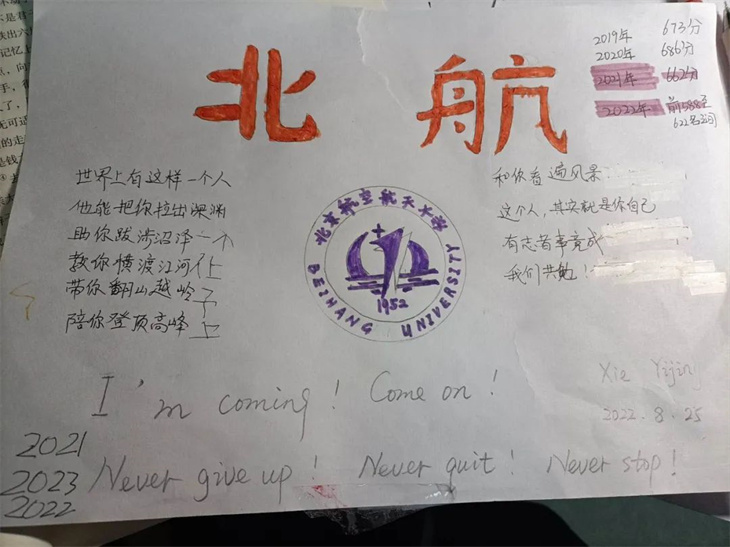 北航
2019年 673分
2020年 686分
2021年 662分
2022年 前588至
622名之间
世界上有这样一个人
他能把你拉出深渊
助你跋涉沼泽
教你横渡江河
带你翻山越岭
陪你登顶高峰
和你看遍风景
这个人，其实就是你自己
有志者事竟成
我们共勉！
北京航空航天大学
1952
BEIHANG UNIVERSITY
I'm coming! Come on!
Xie Yijing
2022.8.25
2021
2023
2022
Never give up! Never quit! Never stop!